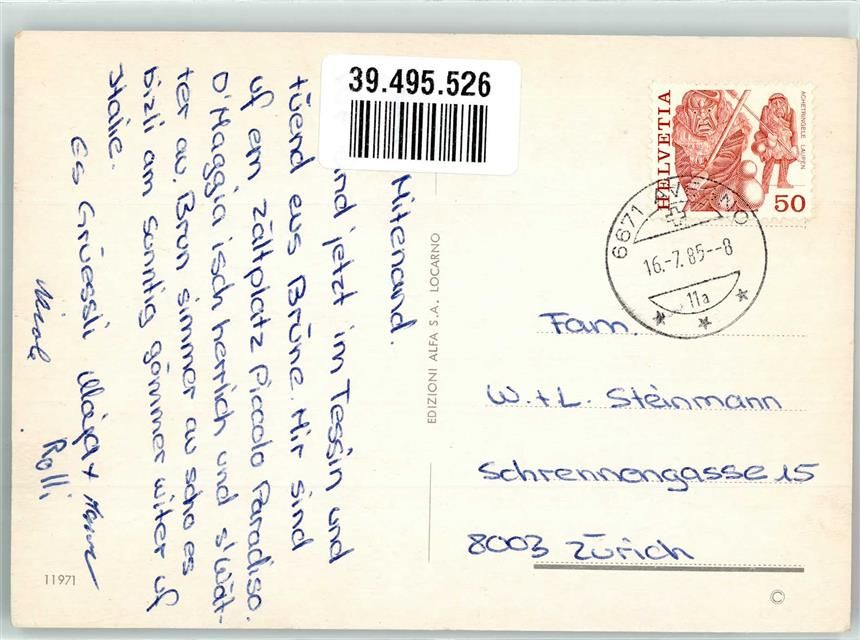 39.495.526
Mitenand.
ind jetzt im Tessin und
tüend eus Brüne. Mir sind
uf em zältplatz Piccolo Paradiso.
D'Maggia isch herrlich und s'Wät-
ter au. Brun simmer au scho es
bizli am sunntig gömmer witer uf
Italie.
Es Grüessli Maya +
Nicole Rolli
EDIZIONI ALFA S.A. LOCARNO
11971
HELVETIA
ACHETRINGELE LAUPEN
50
6671 AVEGNO
16.-7.85--8
11a
Fam.
W. + L. Steinmann
Schrennengasse 15
8003 Zürich
©